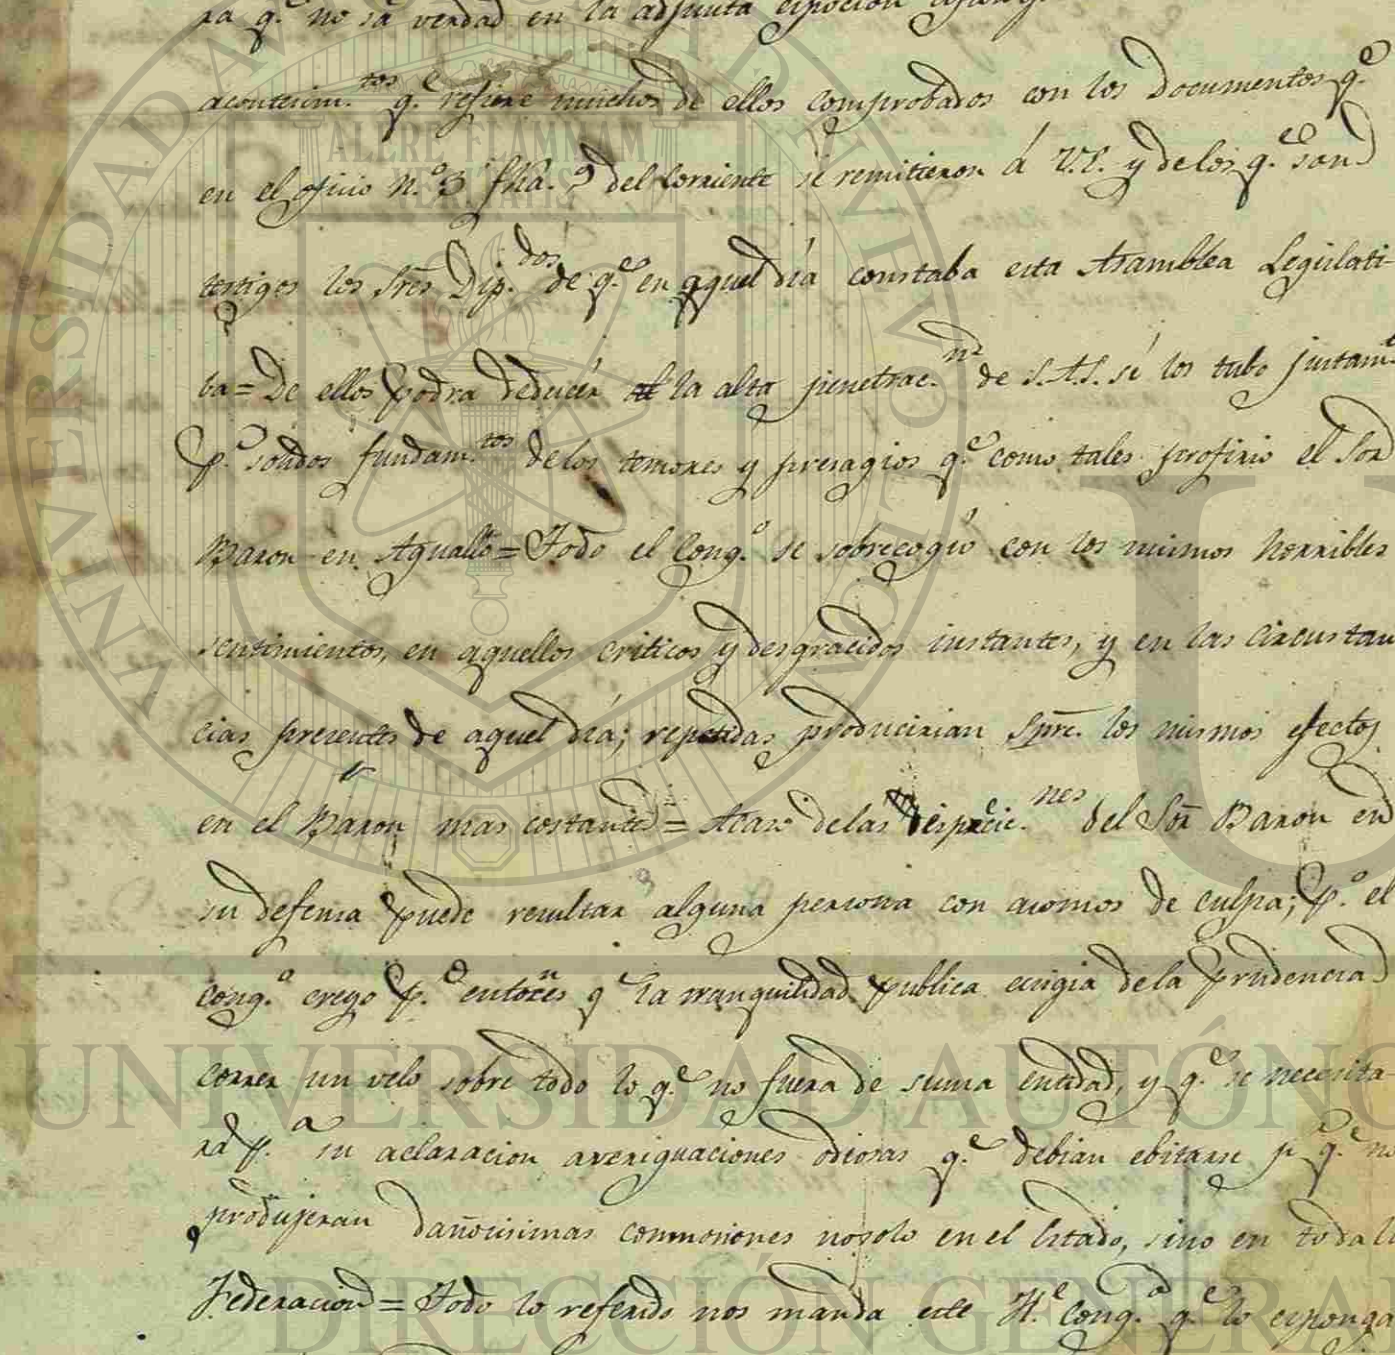 ra q.e no sa verdad en la adjunta
acontecim.tos q.e refiere muchos de ellos comprobados con los Documentos q.e
en el oficio N.o 3 fha. 9 del corriente se remitieron á V.E. y de los q.e son
testigos los Sres Dip.dos de q.e en aquel día constaba esta Asamblea Legislati-
ba = De ellos podra deducir la alta penetrac.n de S.A.S. sí los tubo justam.e
p.r solidos fundam.tos de los temores y presagios q.e como tales profirio el Sor
Baron en Aguallo = Todo el Cong.o se sobrecogió con los mismos horribles
sentimientos, en aquellos criticos y desgracidos instantes, y en las circustan
cias presentes de aquel día; repetidas producirian Spre. los mismos efectos
en el Baron mas costante = Acaso de las espocic.nes del Sor Baron en
su defensa puede resultar alguna persona con asomos de culpa; p.o el
Cong.o creyo p.r entonces q la tranquilidad publica ecsigia de la prudencia
correr un velo sobre todo lo q.e no fuera de suma entidad, y q.e se necesita-
ra p.a su aclaracion averiguaciones odiosas q.e debian ebitarse p q.e no
produjeran dañosisimas conmosiones no solo en el Estado, sino en toda la
Federacion = Todo lo referido nos manda este H.e Cong.o q.e lo esponga
UNIVERSIDAD AUTÓNO
DIRECCIÓN GENERAL
ALERE FLAMMAM
VERITATIS